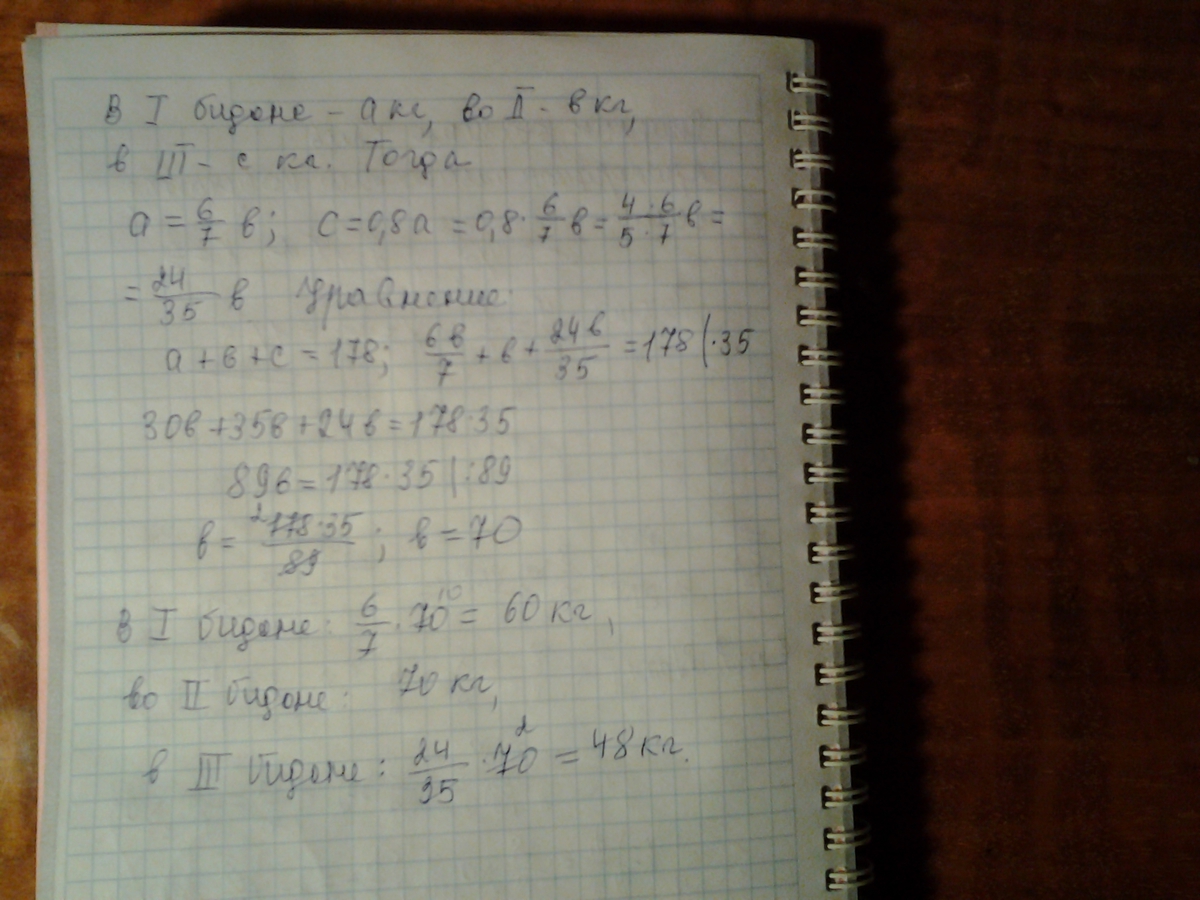 В I бидоне - а кг, во II - в кг,
в III - с кг. Тогда
a = 6/7 в; c = 0,8a = 0,8 · 6/7 в = 4·6/5·7 в =
= 24/35 в Уравнение:
a + в + c = 178; 6в/7 + в + 24в/35 = 178 | ·35
30в + 35в + 24в = 178·35
89в = 178·35 | :89
в = ² 178·35/89; в = 70
В I бидоне: 6/7 · 70 ¹⁰ = 60 кг,
во II бидоне: 70 кг,
в III бидоне: 24/35 · 70 ² = 48 кг.